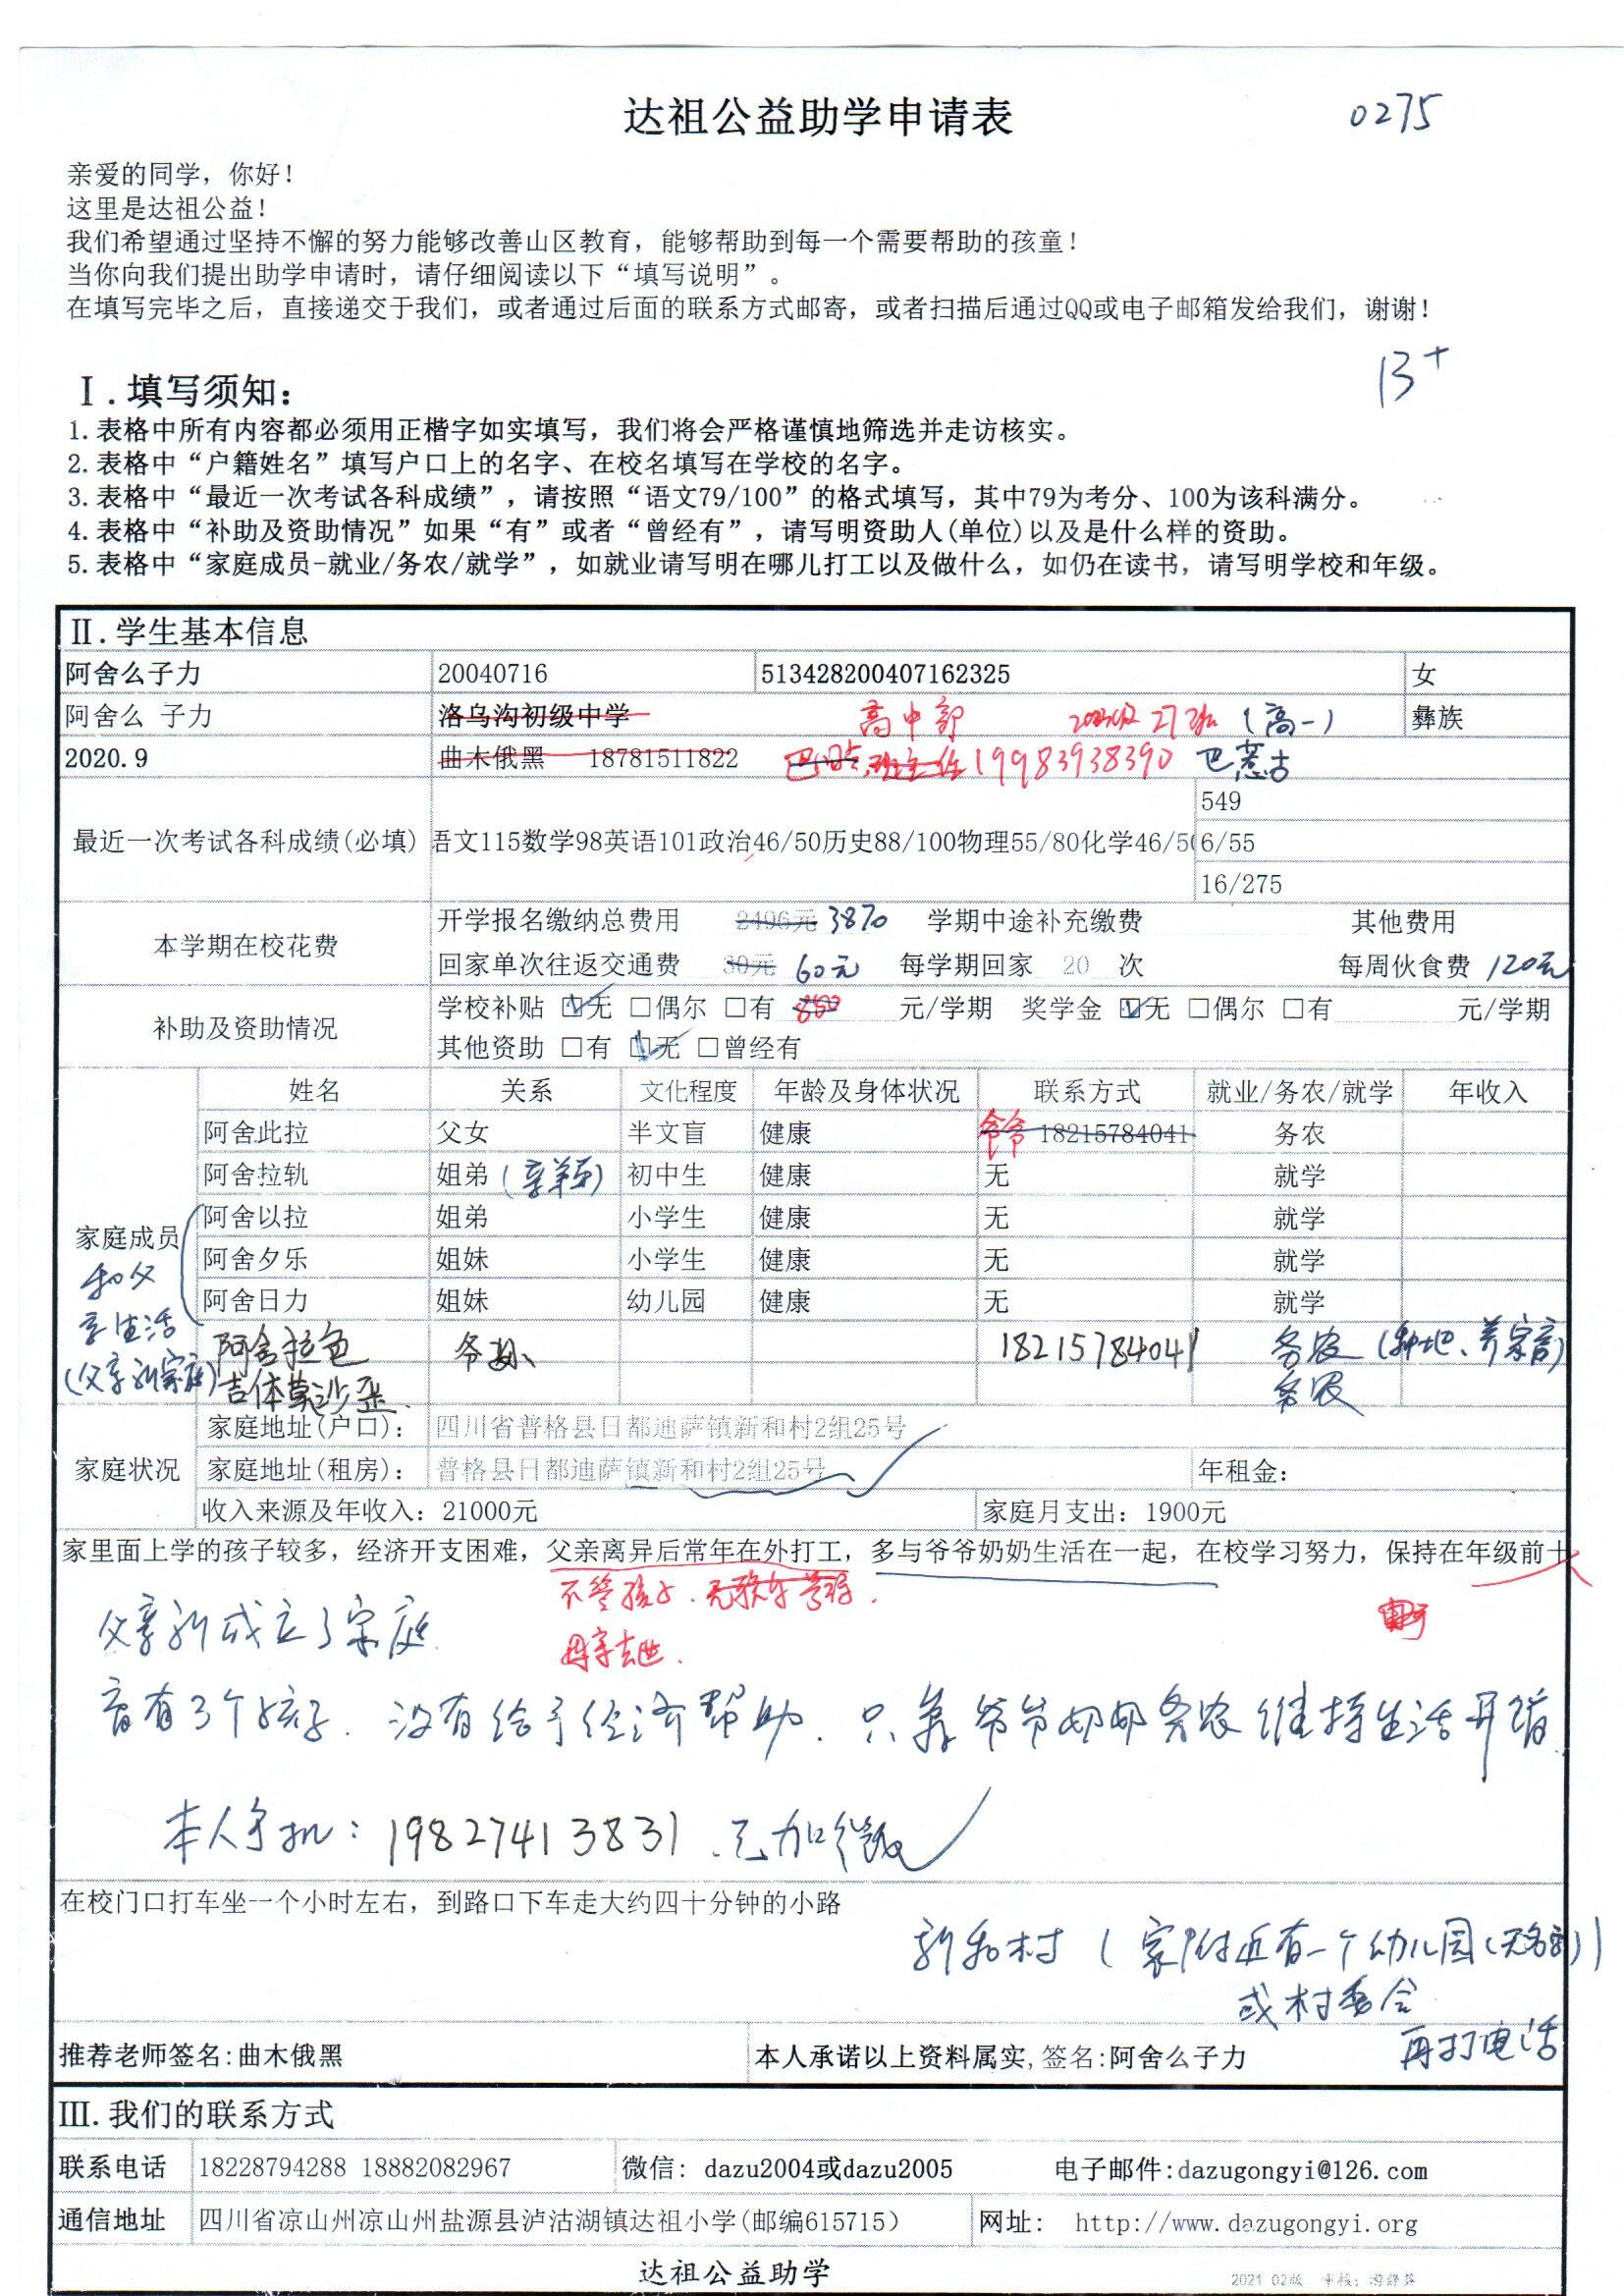 达祖公益助学申请表
0275
亲爱的同学，你好！
这里是达祖公益！
我们希望通过坚持不懈的努力能够改善山区教育，能够帮助到每一个需要帮助的孩童！
当你向我们提出助学申请时，请仔细阅读以下“填写说明”。
在填写完毕之后，直接递交于我们，或者通过后面的联系方式邮寄，或者扫描后通过QQ或电子邮箱发给我们，谢谢！
B+
Ⅰ.填写须知：
1.表格中所有内容都必须用正楷字如实填写，我们将会严格谨慎地筛选并走访核实。
2.表格中“户籍姓名”填写户口上的名字、在校名填写在学校的名字。
3.表格中“最近一次考试各科成绩”，请按照“语文79/100”的格式填写，其中79为考分、100为该科满分。
4.表格中“补助及资助情况”如果“有”或者“曾经有”，请写明资助人(单位)以及是什么样的资助。
5.表格中“家庭成员-就业/务农/就学”，如就业请写明在哪儿打工以及做什么，如仍在读书，请写明学校和年级。
Ⅱ.学生基本信息
阿舍么子力 20040716 513428200407162325 女
阿舍么 子力 洛乌沟初级中学 高中部 27班 (高一) 彝族
2020.9 曲木俄黑 18781511822 班主任 19983938390 巴惹古
549
最近一次考试各科成绩(必填) 语文115数学98英语101政治46/50历史88/100物理55/80化学46/50 6/55
16/275
本学期在校花费 开学报名缴纳总费用 2496元 3870 学期中途补充缴费 其他费用
回家单次往返交通费 30元 60元 每学期回家 20 次 每周伙食费 120元
补助及资助情况 学校补贴 ☑无 □偶尔 □有 800 元/学期 奖学金 ☑无 □偶尔 □有 元/学期
其他资助 □有 ☑无 □曾经有
姓名 关系 文化程度 年龄及身体状况 联系方式 就业/务农/就学 年收入
阿舍此拉 父女 半文盲 健康 爷爷 18215784041 务农
阿舍拉轨 姐弟 (亲弟弟) 初中生 健康 无 就学
家庭成员 阿舍以拉 姐弟 小学生 健康 无 就学
阿舍夕乐 姐妹 小学生 健康 无 就学
阿舍日力 姐妹 幼儿园 健康 无 就学
和父亲生活
(父亲新家庭)
阿舍拉色 爷孙 18215784041 务农 (种地、养家畜)
吉体莫沙 务农
家庭状况 家庭地址(户口)： 四川省普格县日都迪萨镇新和村2组25号
家庭地址(租房)： 普格县日都迪萨镇新和村2组25号 年租金：
收入来源及年收入：21000元 家庭月支出：1900元
家里面上学的孩子较多，经济开支困难，父亲离异后常年在外打工，多与爷爷奶奶生活在一起，在校学习努力，保持在年级前十
不管孩子.
父亲新成立了家庭
母亲去世.
育有3个孩子. 没有给予经济帮助. 只靠爷爷奶奶务农维持生活开销
本人手机：19827413831 .已加微
在校门口打车坐一个小时左右，到路口下车走大约四十分钟的小路
新和村 (家附近有一个幼儿园(无名字))
或村委会
再打电话
推荐老师签名:曲木俄黑 本人承诺以上资料属实,签名:阿舍么子力
Ⅲ.我们的联系方式
联系电话 18228794288 18882082967 微信: dazu2004或dazu2005 电子邮件:dazugongyi@126.com
通信地址 四川省凉山州凉山州盐源县泸沽湖镇达祖小学(邮编615715) 网址: http://www.dazugongyi.org
达祖公益助学
2021 02版